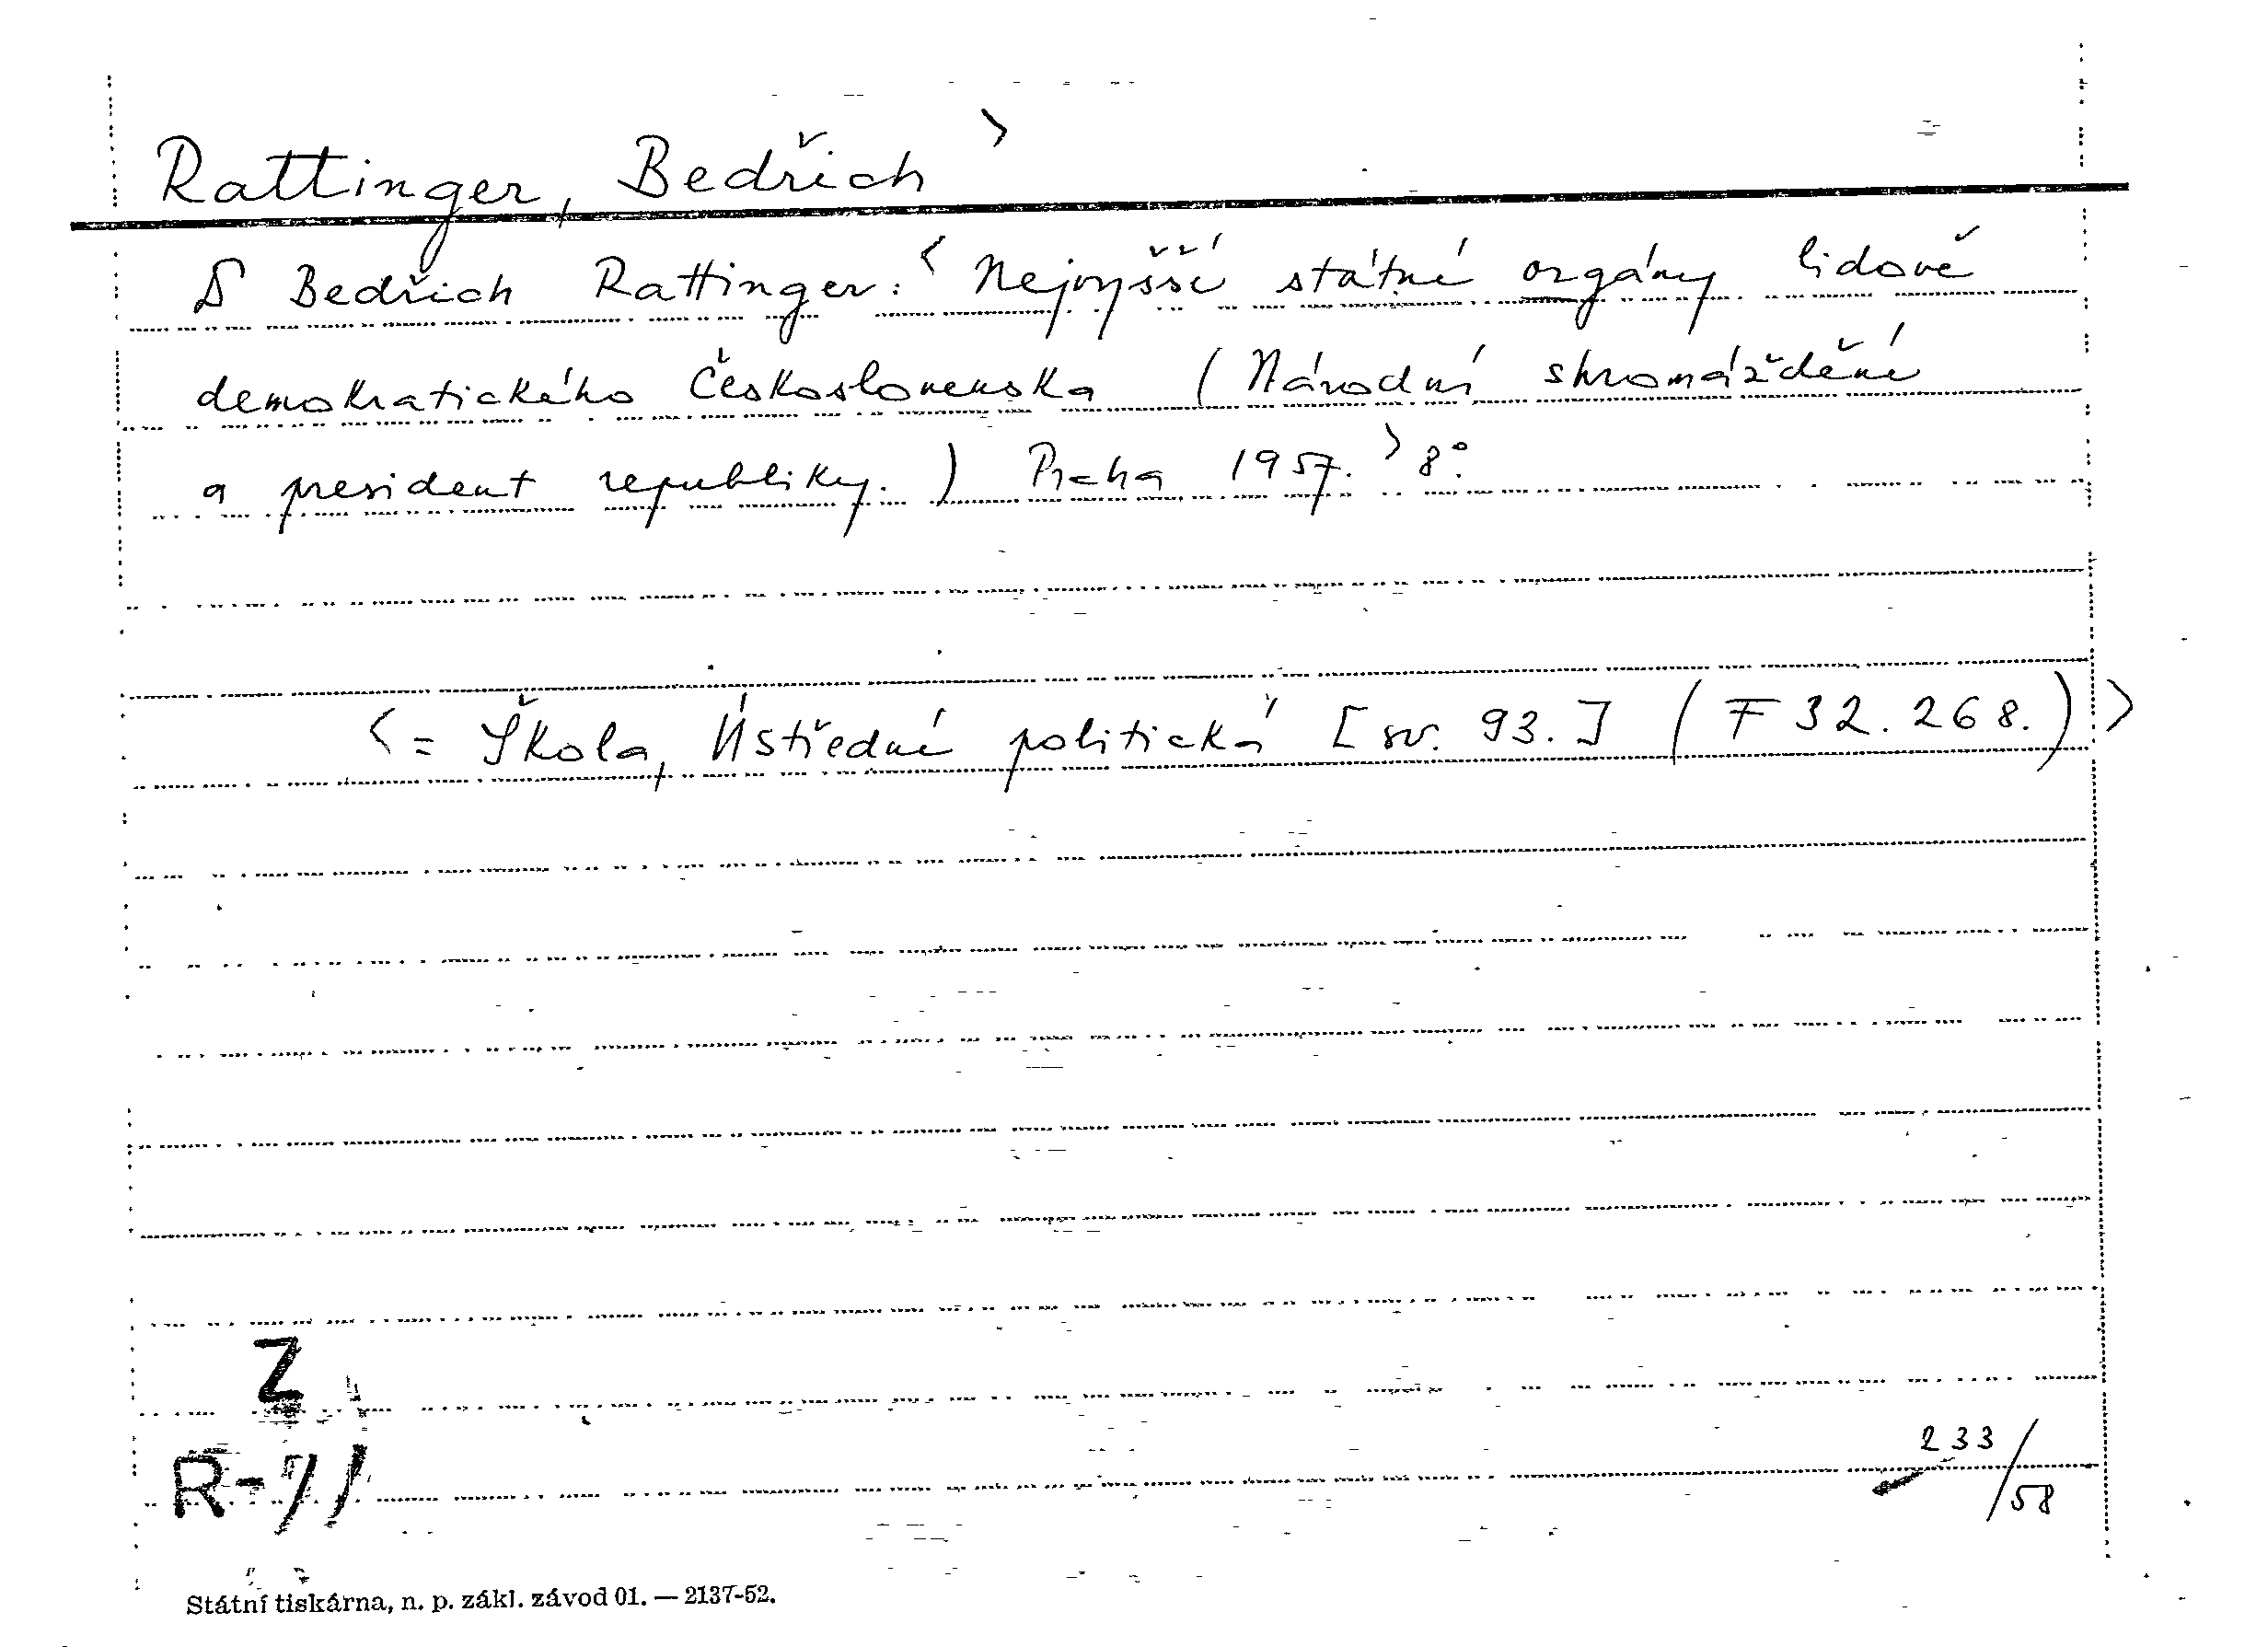 Rattinger, Bedřich >
Bedřich Rattinger: < Nejvyšší státní orgány lidově
demokratického Československa (Národní shromáždění
a president republiky.) Praha 1957. > 8°.
< = Škola, Ústřední politická [sv. 93.] (F 32.268.) >
Z
R-71
233/58
Státní tiskárna, n. p. zákl. závod 01. — 2137-52.